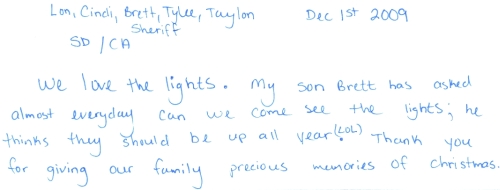 Lon, Cindi, Brett, Tylee, Taylon Dec 1st 2009
Sheriff
SD / CA
We love the lights. My son Brett has asked
almost everyday can we come see the lights; he
thinks they should be up all year! (LOL) Thank you
for giving our family precious memories of christmas.